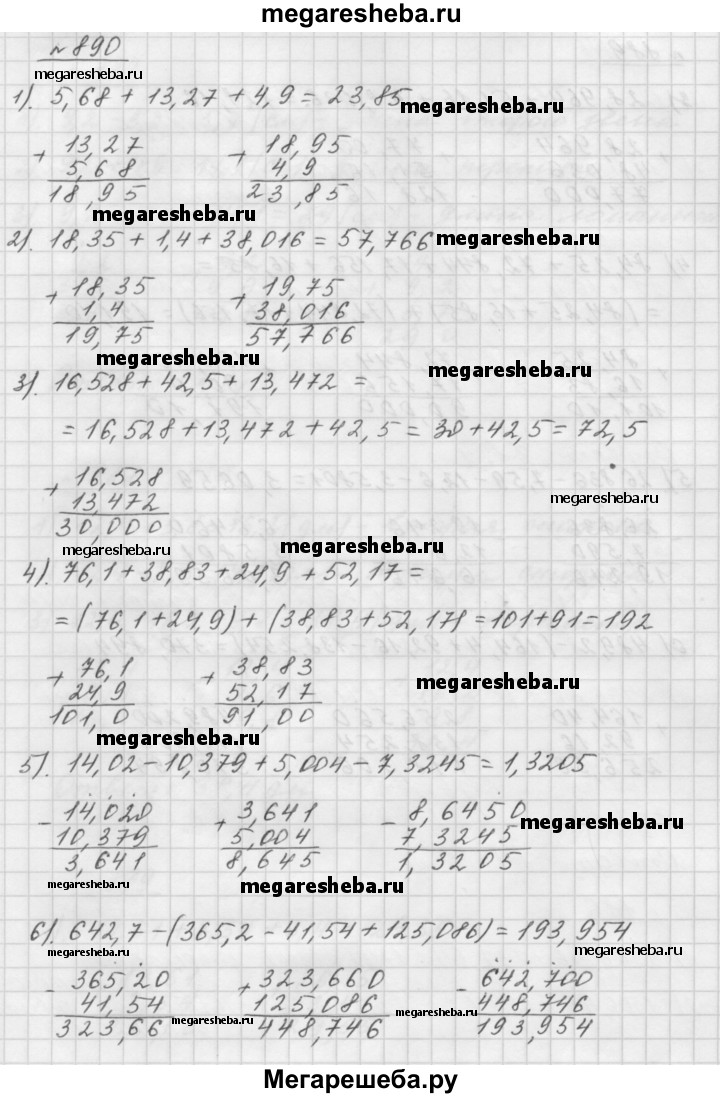 megaresheba.ru
№890
megaresheba.ru
1). 5,68 + 13,27 + 4,9 = 23,85
megaresheba.ru
+ 13,27 + 18,95
5,68 4,9
18,95 23,85
megaresheba.ru
2). 18,35 + 1,4 + 38,016 = 57,766
megaresheba.ru
+ 18,35 + 19,75
1,4 38,016
19,75 57,766
megaresheba.ru
megaresheba.ru
3). 16,528 + 42,5 + 13,472 =
= 16,528 + 13,472 + 42,5 = 30 + 42,5 = 72,5
+ 16,528
13,472
30,000
megaresheba.ru
megaresheba.ru
megaresheba.ru
4). 76,1 + 38,83 + 24,9 + 52,17 =
= (76,1 + 24,9) + (38,83 + 52,17) = 101 + 91 = 192
+ 76,1 + 38,83
24,9 52,17
101,0 91,00
megaresheba.ru
megaresheba.ru
5). 14,02 - 10,379 + 5,004 - 7,3245 = 1,3205
- 14,020 + 3,641 - 8,6450
10,379 5,004 7,3245
3,641 8,645 1,3205
megaresheba.ru
megaresheba.ru
megaresheba.ru
6). 642,7 - (365,2 - 41,54 + 125,086) = 193,954
megaresheba.ru
- 365,20 + 323,660 - 642,700
41,54 125,086 448,746
323,66 448,746 193,954
megaresheba.ru
megaresheba.ru
Мегарешеба.ру